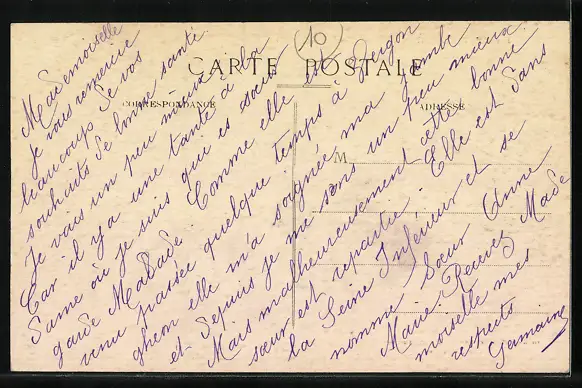 10
CARTE POSTALE
CORRESPONDANCE
ADRESSE
M
Mademoiselle
Je vous remercie
beaucoup de vos
souhaits de bonne santé.
Je vais un peu mieux
Car il y a une tante à la
Dame où je suis qui est sœur
garde Malade. Comme elle est
venu passée quelque temps à Gergon
ghéon elle m'a soignée ma jambe
et depuis je me sens un peu mieux.
Mais malheureusement cette bonne
sœur est repartie. Elle est dans
la Seine Inférieur et se
nomme Sœur Anne
Marie. Recevez Made
moiselle mes
respects
Germaine